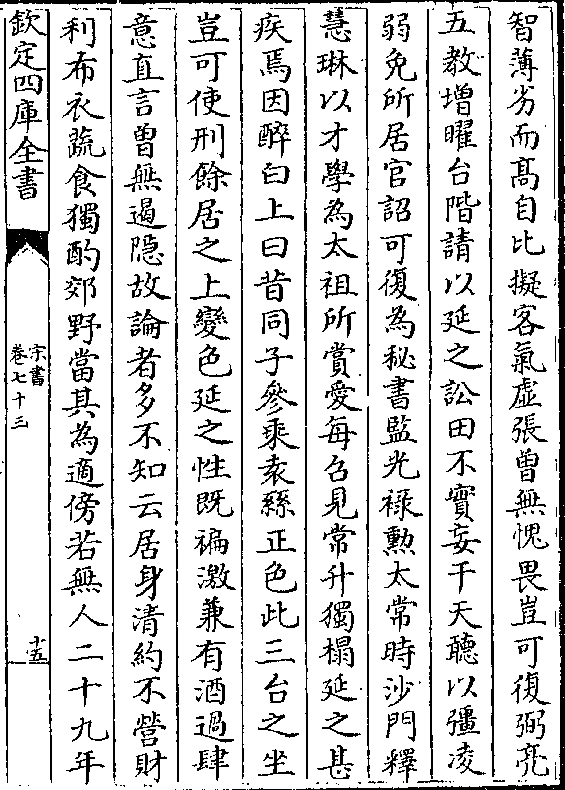 智薄劣而髙自比擬客氣虚張曽無愧畏豈可復弼亮
五教增曜台階請以延之訟田不實妄干天聽以彊凌
弱免所居官詔可復為秘書監光禄勲太常時沙門釋
慧琳以才學為太祖所賞愛每召見常升獨榻延之甚
疾焉因醉白上曰昔同子參乗袁絲正色此三台之坐
豈可使刑餘居之上變色延之性既褊激兼有酒過肆
意直言曽無遏隠故論者多不知云居身清約不營財
利布衣蔬食獨酌郊野當其為適傍若無人二十九年
欽定四庫全書
宋書
卷七十三
十五